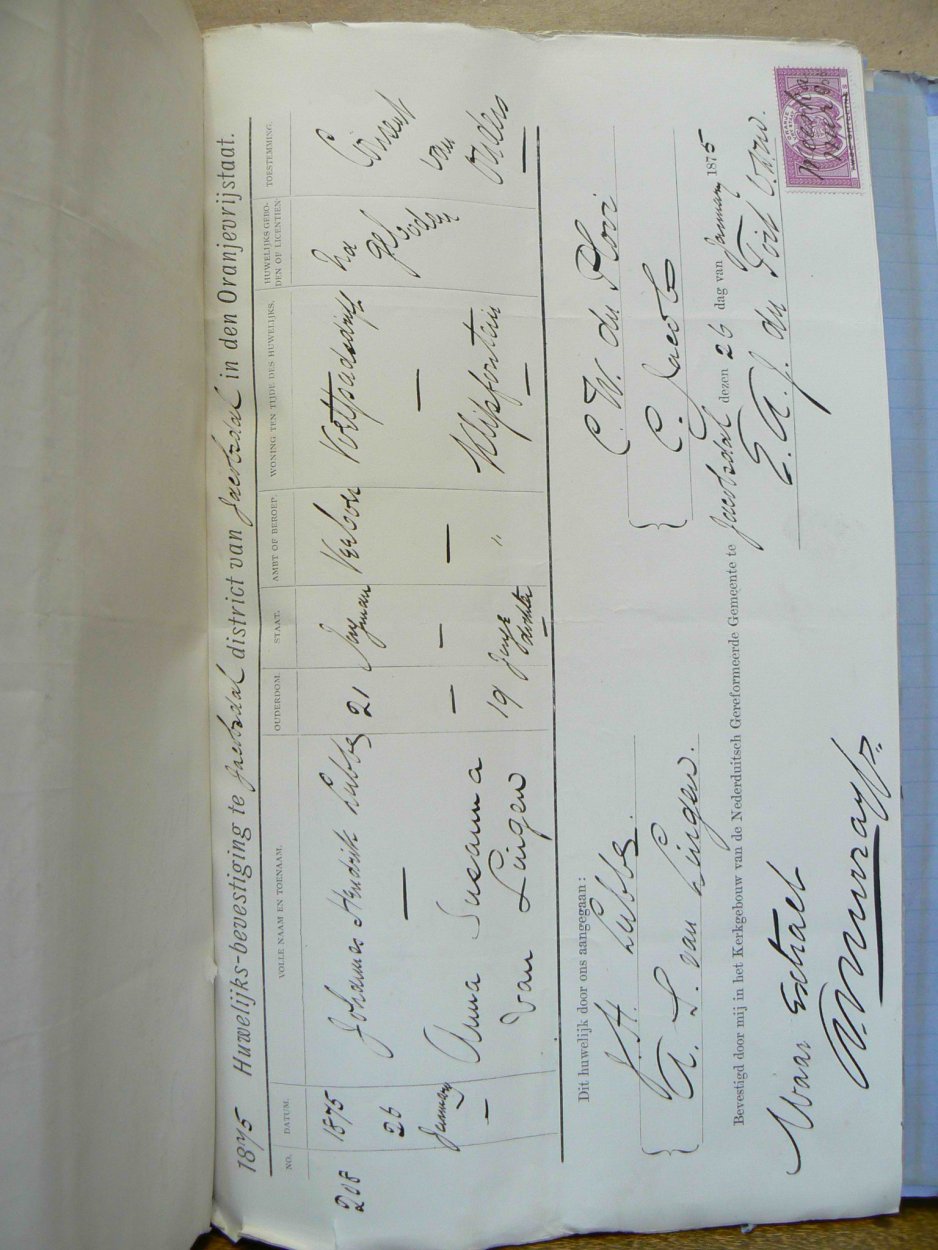 1875 Huwelijks-bevestiging te Jacobsdal district van Jacobsdal in den Oranjevrijstaat.
NO. DATUM. VOLLE NAAM EN TOENAAM. OUDERDOM. STAAT. AMBT OF BEROEP. WONING TEN TIJDE DES HUWELIJKS. HUWELIJKS GEBO- TOESTEMMING.
DEN OF LICENTIEN
208 1875 Johannes Hendrik Lubbe 21 Jong Veeboer na Consent
26 man geb van
January — — — — — Ouders
— Anna Susanna 19 Jonge " Klipfontein —
van Lingen dochter —
Dit huwelijk door ons aangegaan:
J. H. Lubbe. C. W. du
A. S. van Lingen. C. Jacobs
Bevestigd door mij in het Kerkgebouw van de Nederduitsch Gereformeerde Gemeente te Jacobsdal dezen 26 dag van January 1875
E. A. J. du Toit
Waar Extract
A. Murray